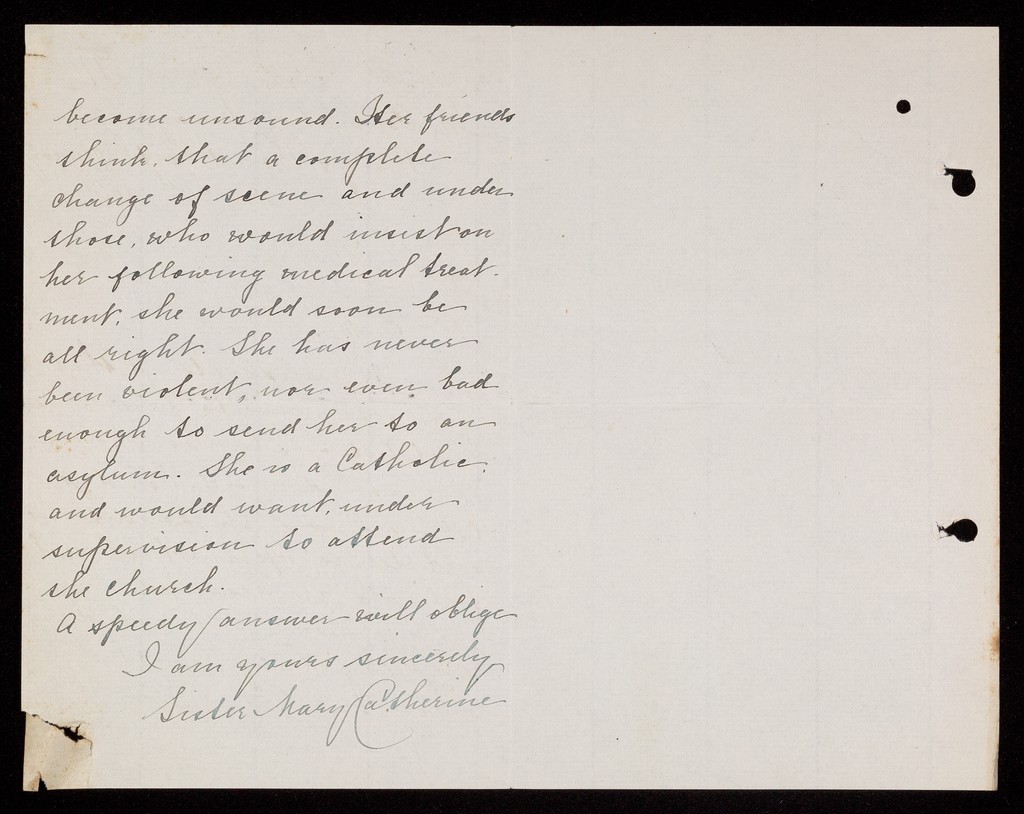 become unsound. Her friends
think, that a complete
change of scene and under
those, who would insist on
her following medical treat-
ment, she would soon be
all right. She has never
been violent, nor even bad
enough to send her to an
asylum. She is a Catholic,
and would want, under
supervision to attend
the church.
A speedy answer will oblige
I am yours sincerely
Sister Mary Catherine